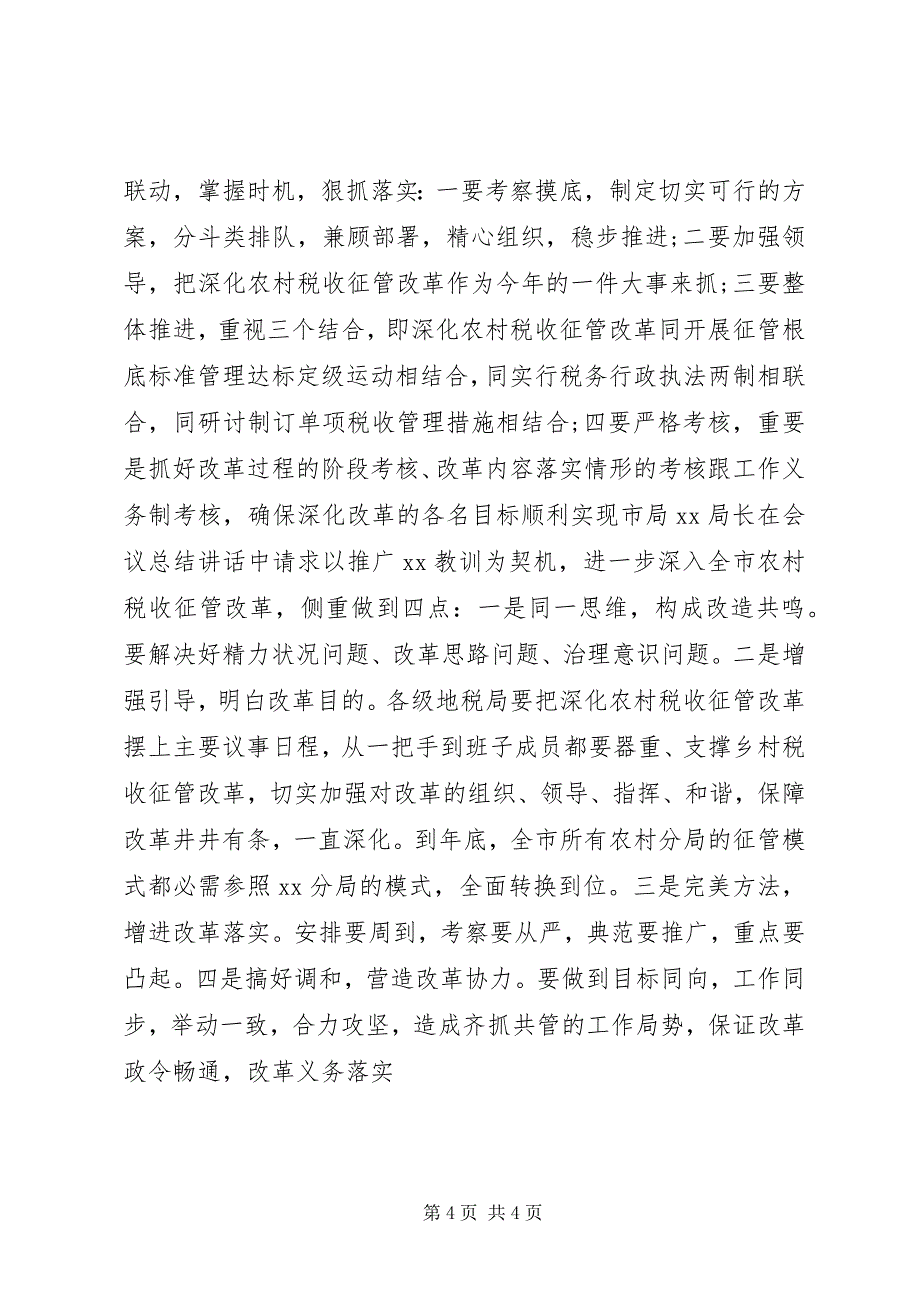 联动，掌握时机，狠抓落实：一要考察摸底，制定切实可行的方
案，分斗类排队，兼顾部署，精心组织，稳步推进;二要加强领
导，把深化农村税收征管改革作为今年的一件大事来抓;三要整
体推进，重视三个结合，即深化农村税收征管改革同开展征管根
底标准管理达标定级运动相结合，同实行税务行政执法两制相联
合，同研讨制订单项税收管理措施相结合;四要严格考核，重要
是抓好改革过程的阶段考核、改革内容落实情形的考核跟工作义
务制考核，确保深化改革的各名目标顺利实现市局 xx 局长在会
议总结讲话中请求以推广 xx 教训为契机，进一步深入全市农村
税收征管改革，侧重做到四点：一是同一思维，构成改造共鸣。
要解决好精力状况问题、改革思路问题、治理意识问题。二是增
强引导，明白改革目的。各级地税局要把深化农村税收征管改革
摆上主要议事日程，从一把手到班子成员都要器重、支撑乡村税
收征管改革，切实加强对改革的组织、领导、指挥、和谐，保障
改革井井有条，一直深化。到年底，全市所有农村分局的征管模
式都必需参照 xx 分局的模式，全面转换到位。三是完美方法，
增进改革落实。安排要周到，考察要从严，典范要推广，重点要
凸起。四是搞好调和，营造改革协力。要做到目标同向，工作同
步，举动一致，合力攻坚，造成齐抓共管的工作局势，保证改革
政令畅通，改革义务落实
第 4 页 共 4 页